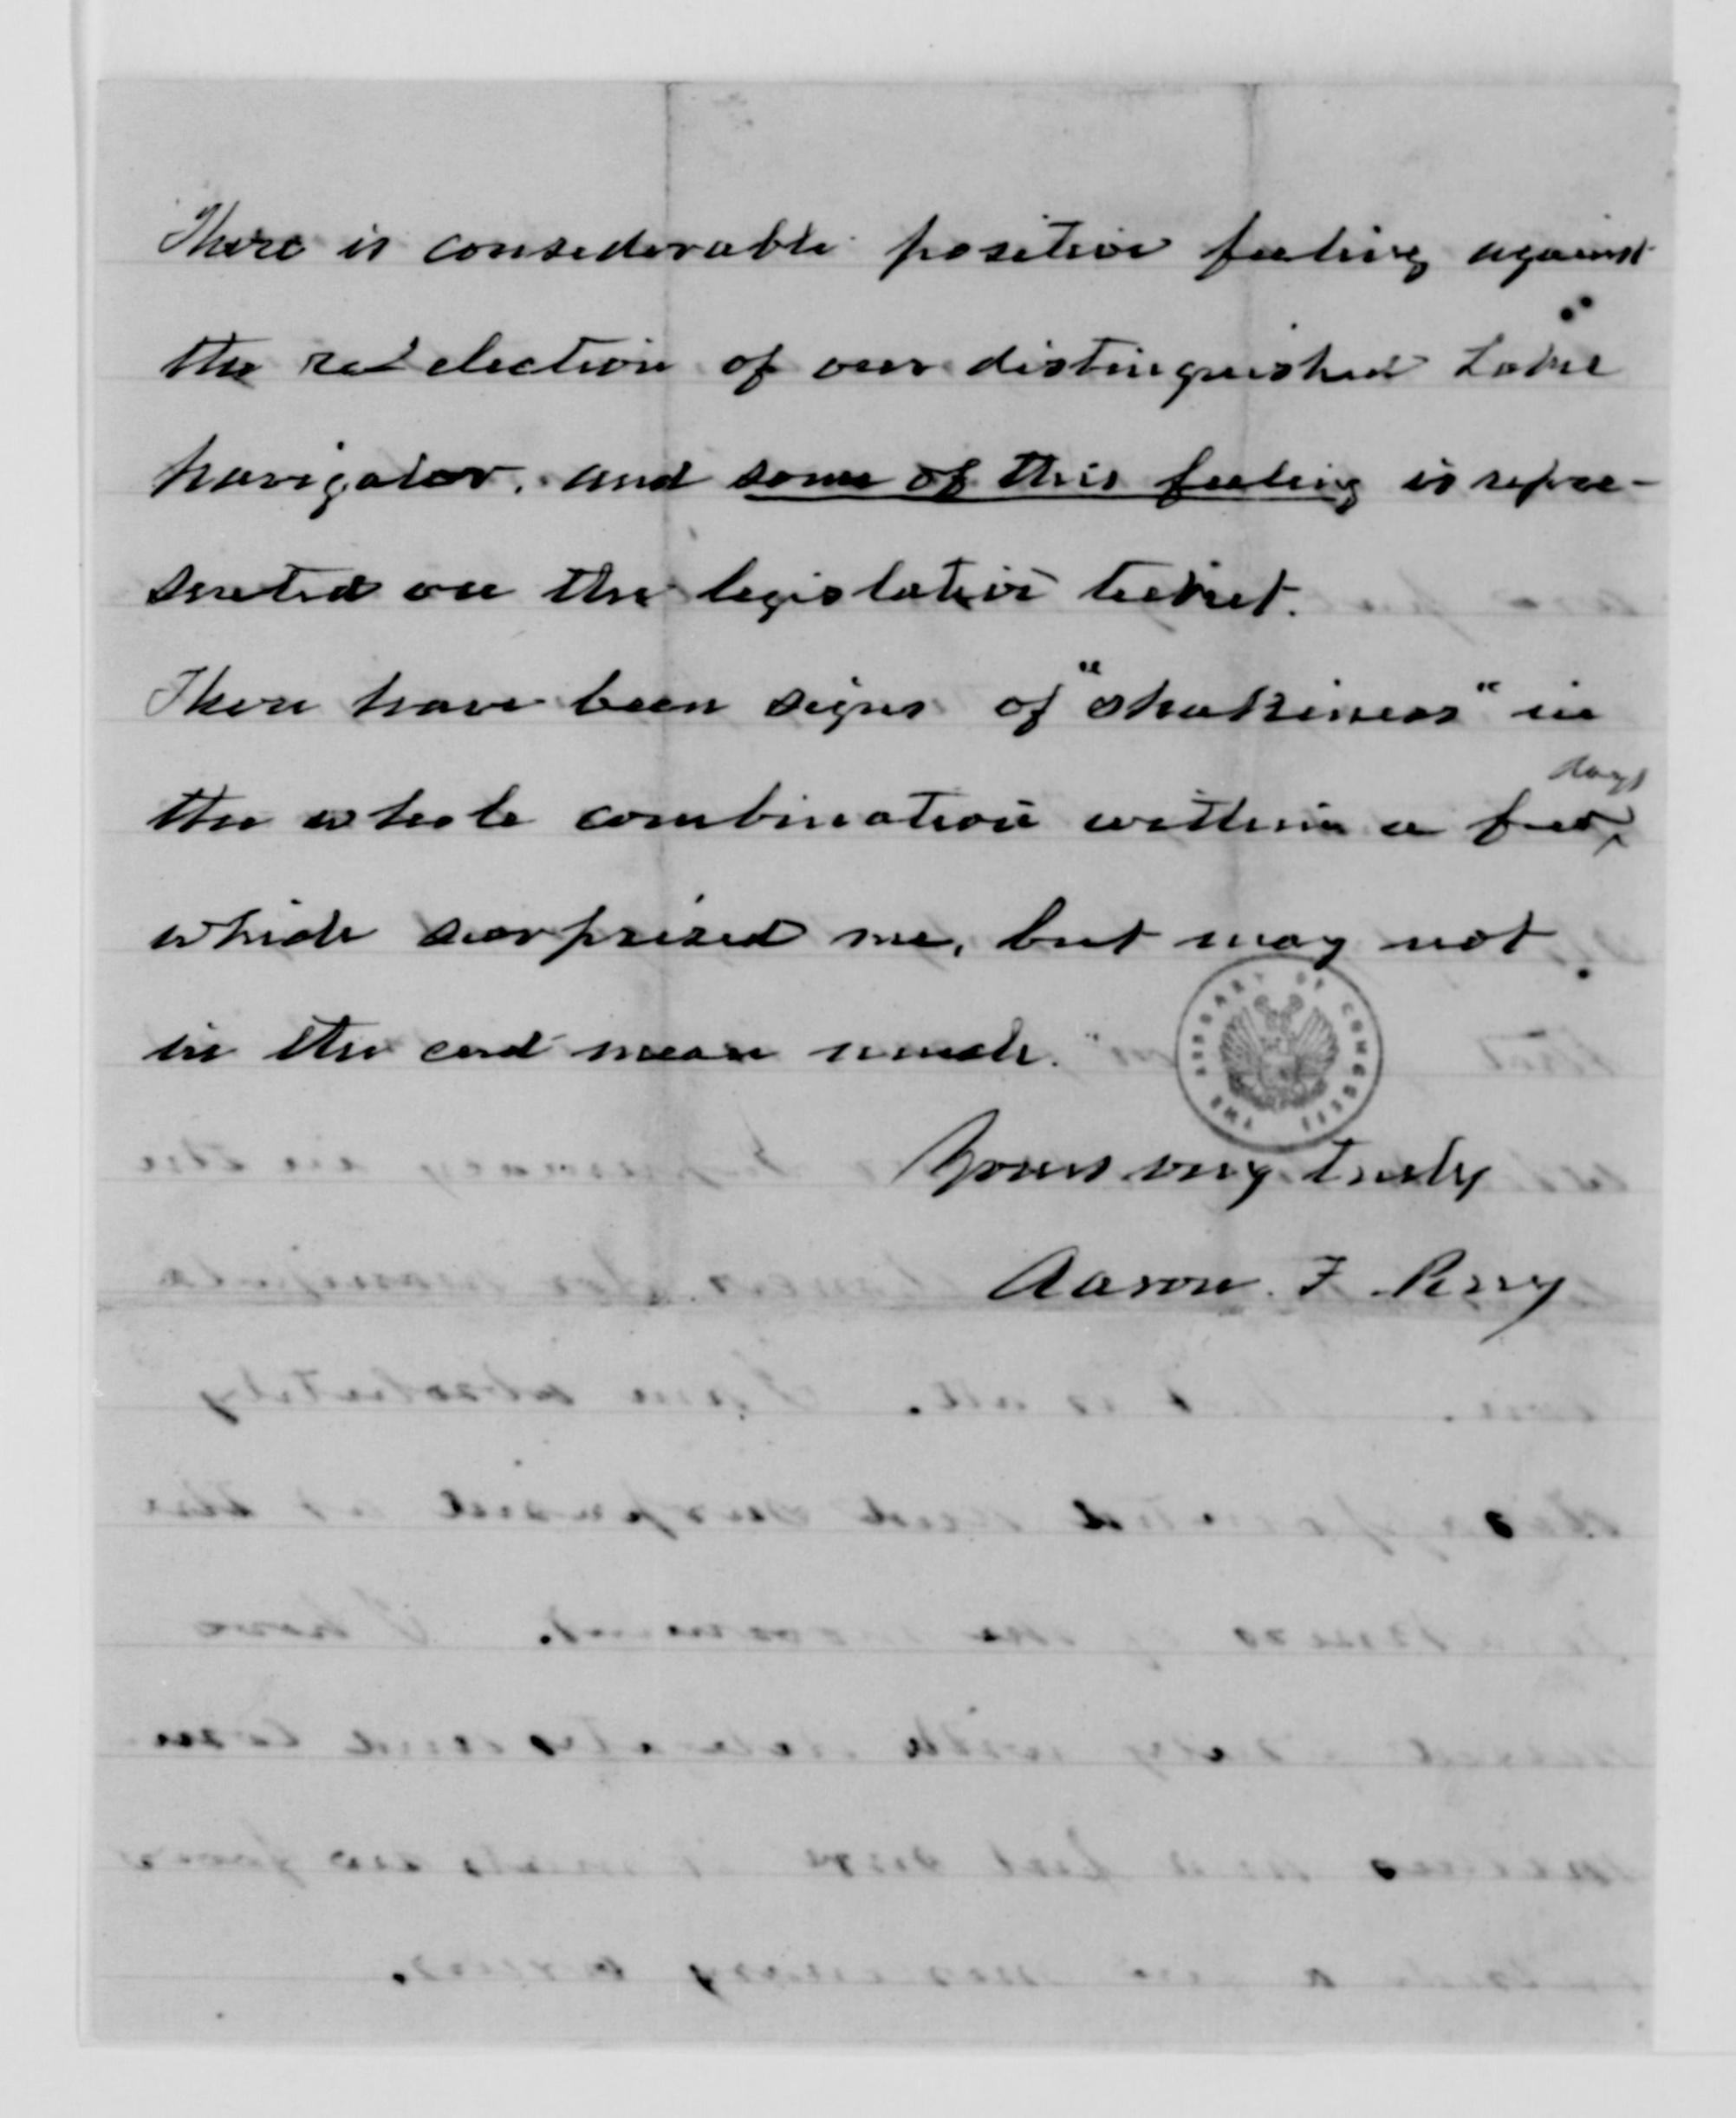 There is considerable positive feeling against
the re-election of our distinguished Lake
navigator, and some of this feeling is repre-
sented on the legislative ticket.
There have been signs of "shakiness" in
the whole combination within a few days
which surprized me, but may not
in the end mean much.
THE LIBRARY OF CONGRESS
Yours very truly
Aaron F. Perry